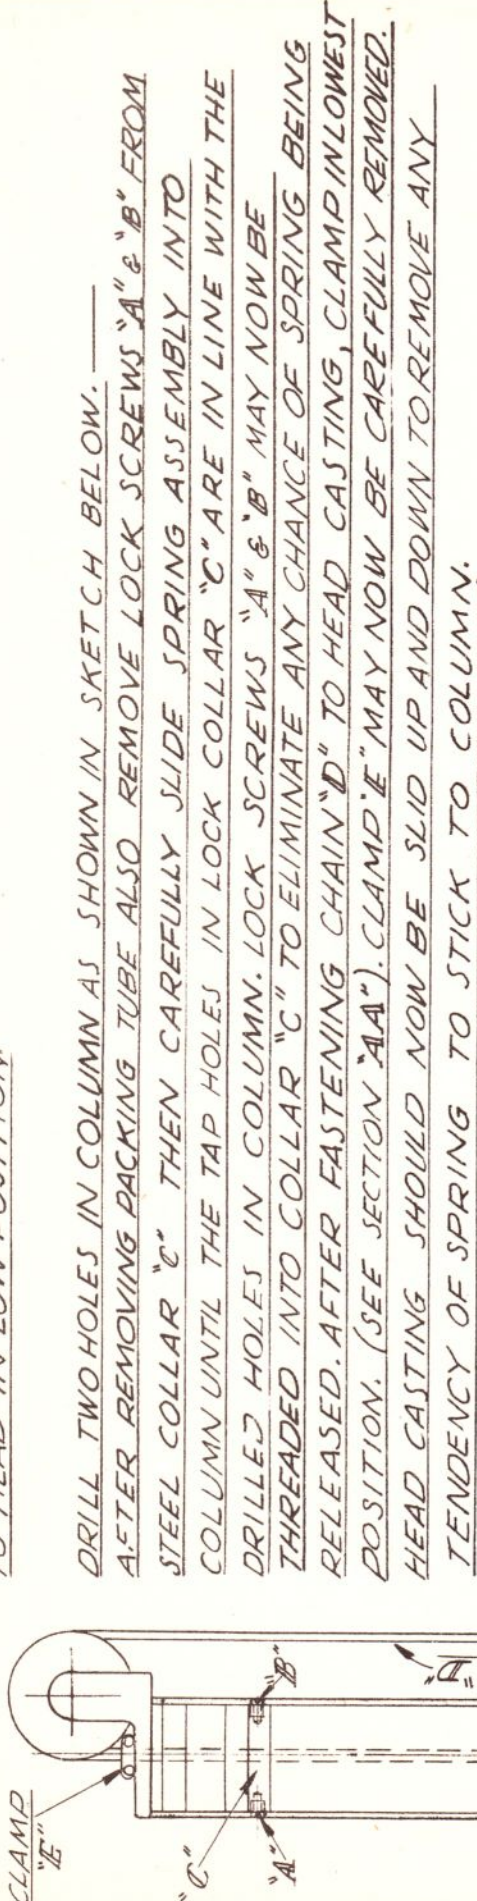 DRILL TWO HOLES IN COLUMN AS SHOWN IN SKETCH BELOW.
AFTER REMOVING PACKING TUBE ALSO REMOVE LOCK SCREWS "A" & "B" FROM
STEEL COLLAR "C" THEN CAREFULLY SLIDE SPRING ASSEMBLY INTO
COLUMN UNTIL THE TAP HOLES IN LOCK COLLAR "C" ARE IN LINE WITH THE
DRILLED HOLES IN COLUMN. LOCK SCREWS "A" & "B" MAY NOW BE
THREADED INTO COLLAR "C" TO ELIMINATE ANY CHANCE OF SPRING BEING
RELEASED. AFTER FASTENING CHAIN "D" TO HEAD CASTING, CLAMP IN LOWEST
POSITION. (SEE SECTION "AA"). CLAMP "E" MAY NOW BE CAREFULLY REMOVED.
HEAD CASTING SHOULD NOW BE SLID UP AND DOWN TO REMOVE ANY
TENDENCY OF SPRING TO STICK TO COLUMN.
CLAMP
"E"
"C"
"A"
"B"
"D"